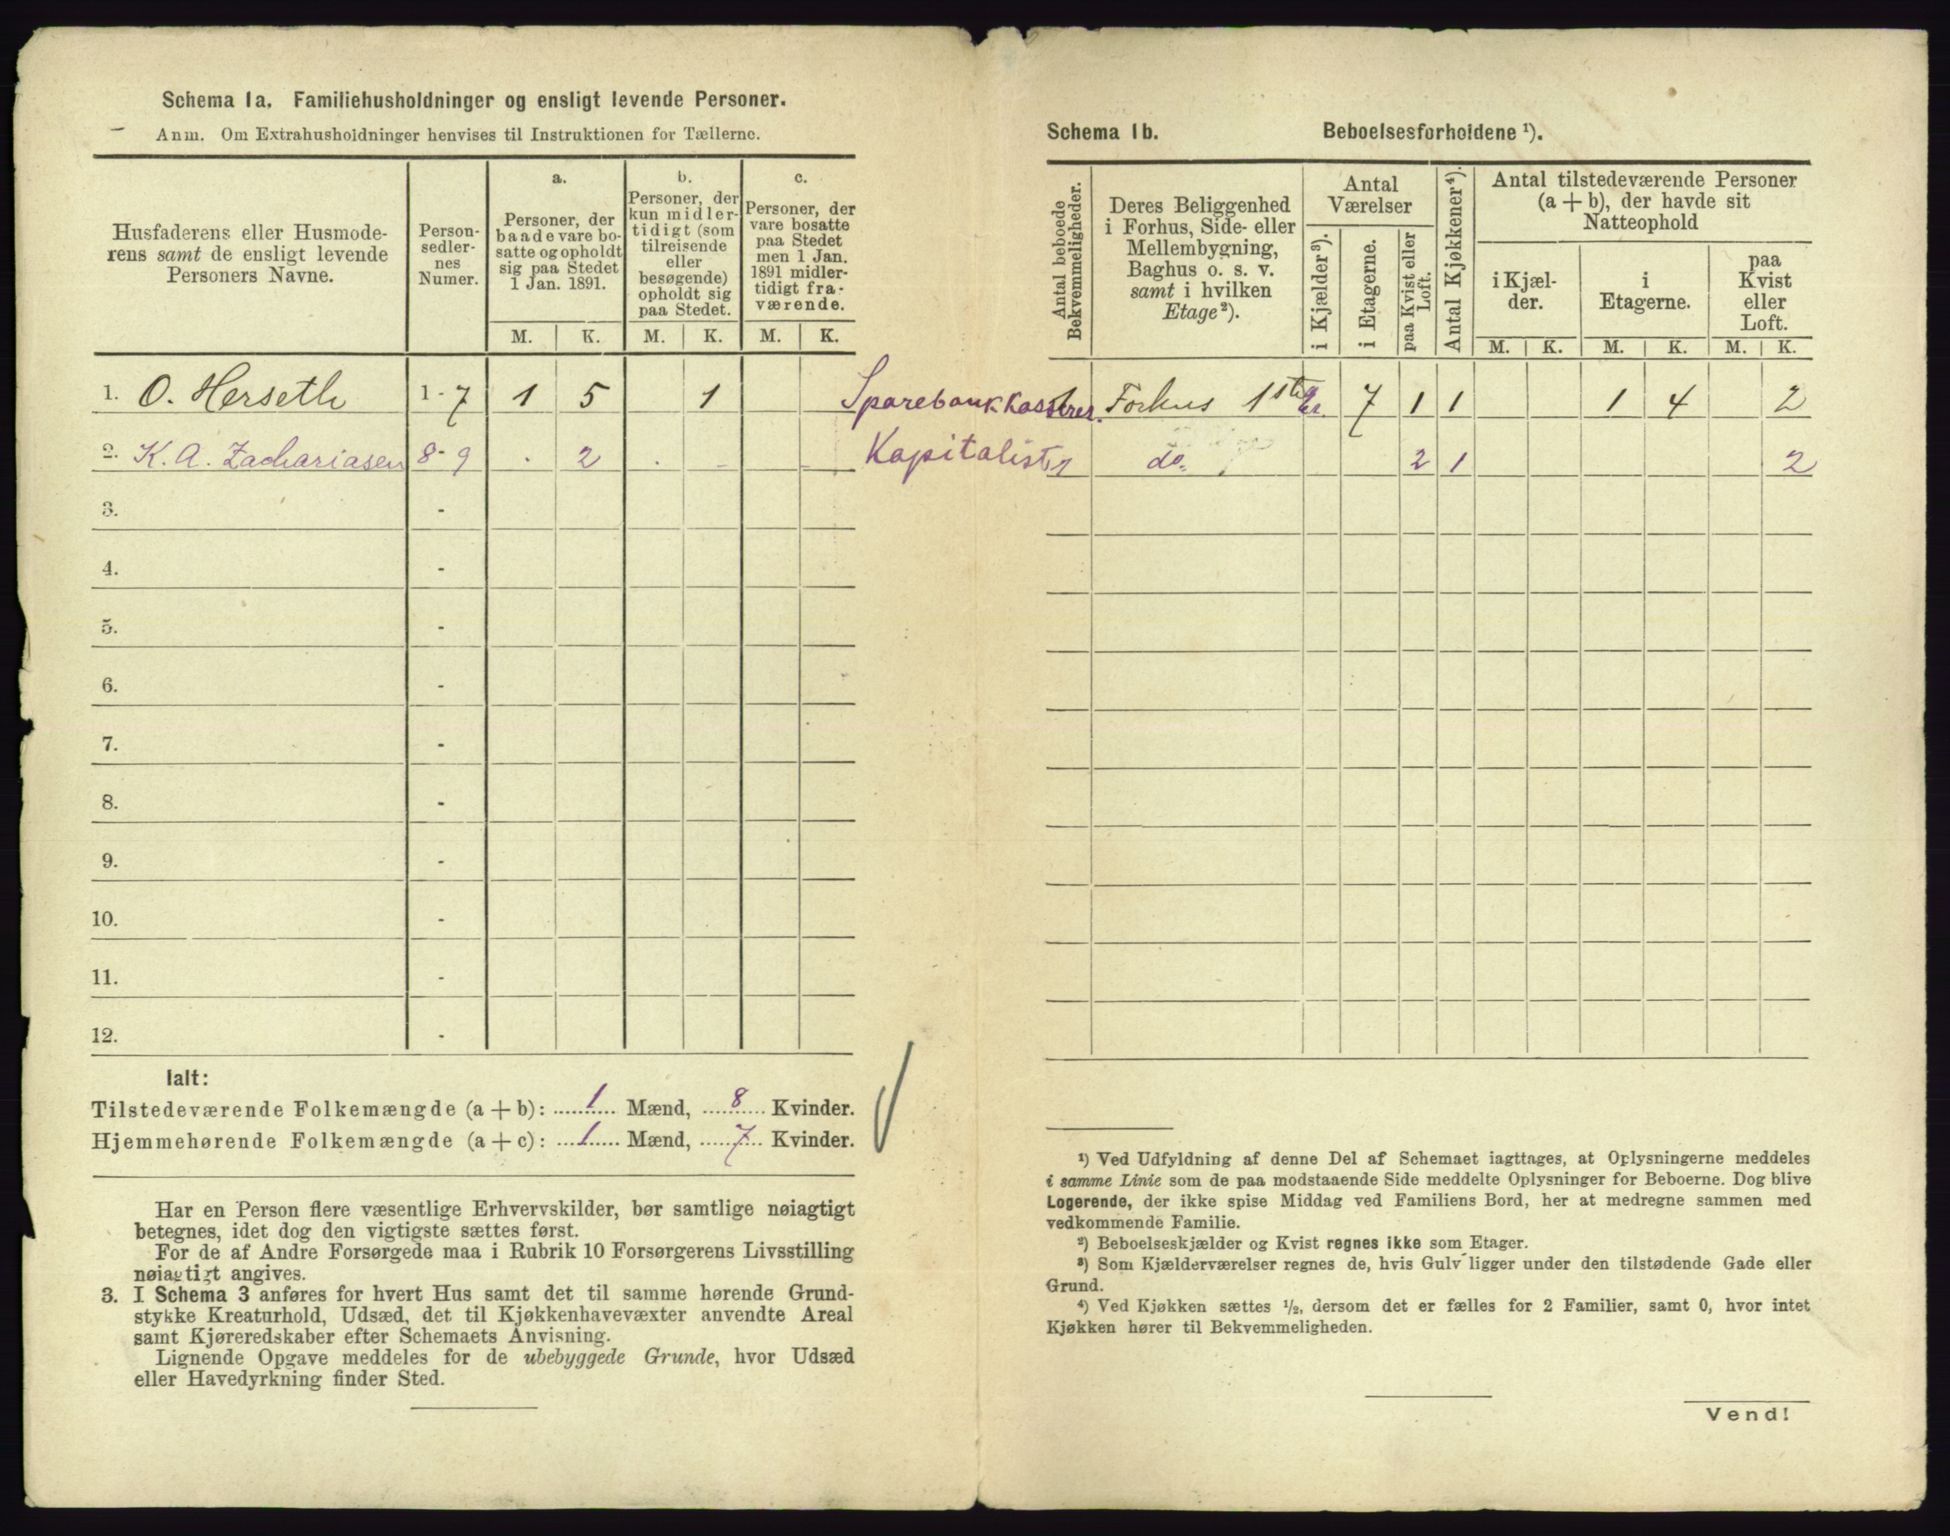 Schema 1a. Familiehusholdninger og ensligt levende Personer.
Anm. Om Extrahusholdninger henvises til Instruktionen for Tællerne.
Husfaderens eller Husmode-
rens samt de ensligt levende
Personers Navne.
Person-
sedler-
nes
Numer.
a.
Personer, der
baade vare bo-
satte og opholdt
sig paa Stedet
1 Jan. 1891.
b.
Personer, der
kun midler-
tidigt (som
tilreisende
eller
besøgende)
opholdt sig
paa Stedet.
c.
Personer, der
vare bosatte
paa Stedet
men 1 Jan.
1891 midler-
tidigt fra-
værende.
M. K. M. K. M. K.
1. O. Herseth 1 - 7 1 5 1
2. K. A. Zachariasen 8 - 9 . 2 . - -
3. -
4. -
5. -
6. -
7. -
8. -
9. -
10. -
11. -
12. -
Ialt:
Tilstedeværende Folkemængde (a + b): 1 Mænd, 8 Kvinder.
Hjemmehørende Folkemængde (a + c): 1 Mænd, 7 Kvinder.
Har en Person flere væsentlige Erhvervskilder, bør samtlige nøiagtigt
betegnes, idet dog den vigtigste sættes først.
For de af Andre Forsørgede maa i Rubrik 10 Forsørgerens Livsstilling
nøiagtigt angives.
3. I Schema 3 anføres for hvert Hus samt det til samme hørende Grund-
stykke Kreaturhold, Udsæd, det til Kjøkkenhavevæxter anvendte Areal
samt Kjøreredskaber efter Schemaets Anvisning.
Lignende Opgave meddeles for de ubebyggede Grunde, hvor Udsæd
eller Havedyrkning finder Sted.
Schema 1b. Beboelsesforholdene ¹).
Antal beboede
Bekvemmeligheder.
Deres Beliggenhed
i Forhus, Side- eller
Mellembygning,
Baghus o. s. v.
samt i hvilken
Etage ²).
Antal
Værelser
i Kjælder ³).
i Etagerne.
paa Kvist eller
Loft.
Antal Kjøkkener ⁴).
Antal tilstedeværende Personer
(a + b), der havde sit
Natteophold
i Kjæl-
der.
i
Etagerne.
paa
Kvist
eller
Loft.
M. K. M. K. M. K.
Sparebankkasserer. Forhus 1ste 7 1 1 1 4 2
Kapitalist 1 do. 2 1 2
¹) Ved Udfyldning af denne Del af Schemaet iagttages, at Oplysningerne meddeles
i samme Linie som de paa modstaaende Side meddelte Oplysninger for Beboerne. Dog blive
Logerende, der ikke spise Middag ved Familiens Bord, her at medregne sammen med
vedkommende Familie.
²) Beboelseskjælder og Kvist regnes ikke som Etager.
³) Som Kjælderværelser regnes de, hvis Gulv ligger under den tilstødende Gade eller
Grund.
⁴) Ved Kjøkken sættes ½, dersom det er fælles for 2 Familier, samt 0, hvor intet
Kjøkken hører til Bekvemmeligheden.
Vend!